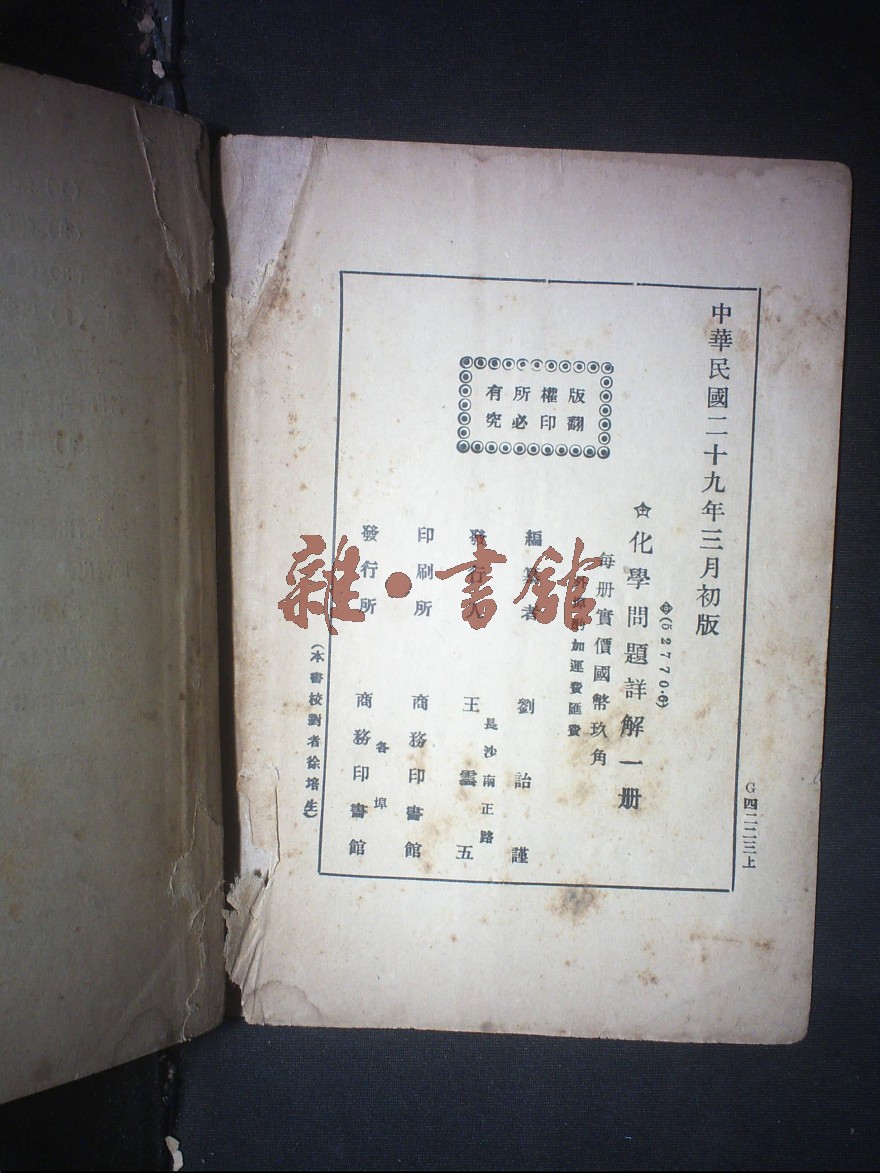 中華民國二十九年三月初版
(52770·6)
化學問題詳解一册
每册實價國幣玖角
外埠酌加運費匯費
版權所有
翻印必究
編纂者 劉詒謹
發行人 王雲五
長沙南正路
印刷所 商務印書館
發行所 商務印書館
各埠
(本書校對者徐培生)
G四二二三上
雜·書館